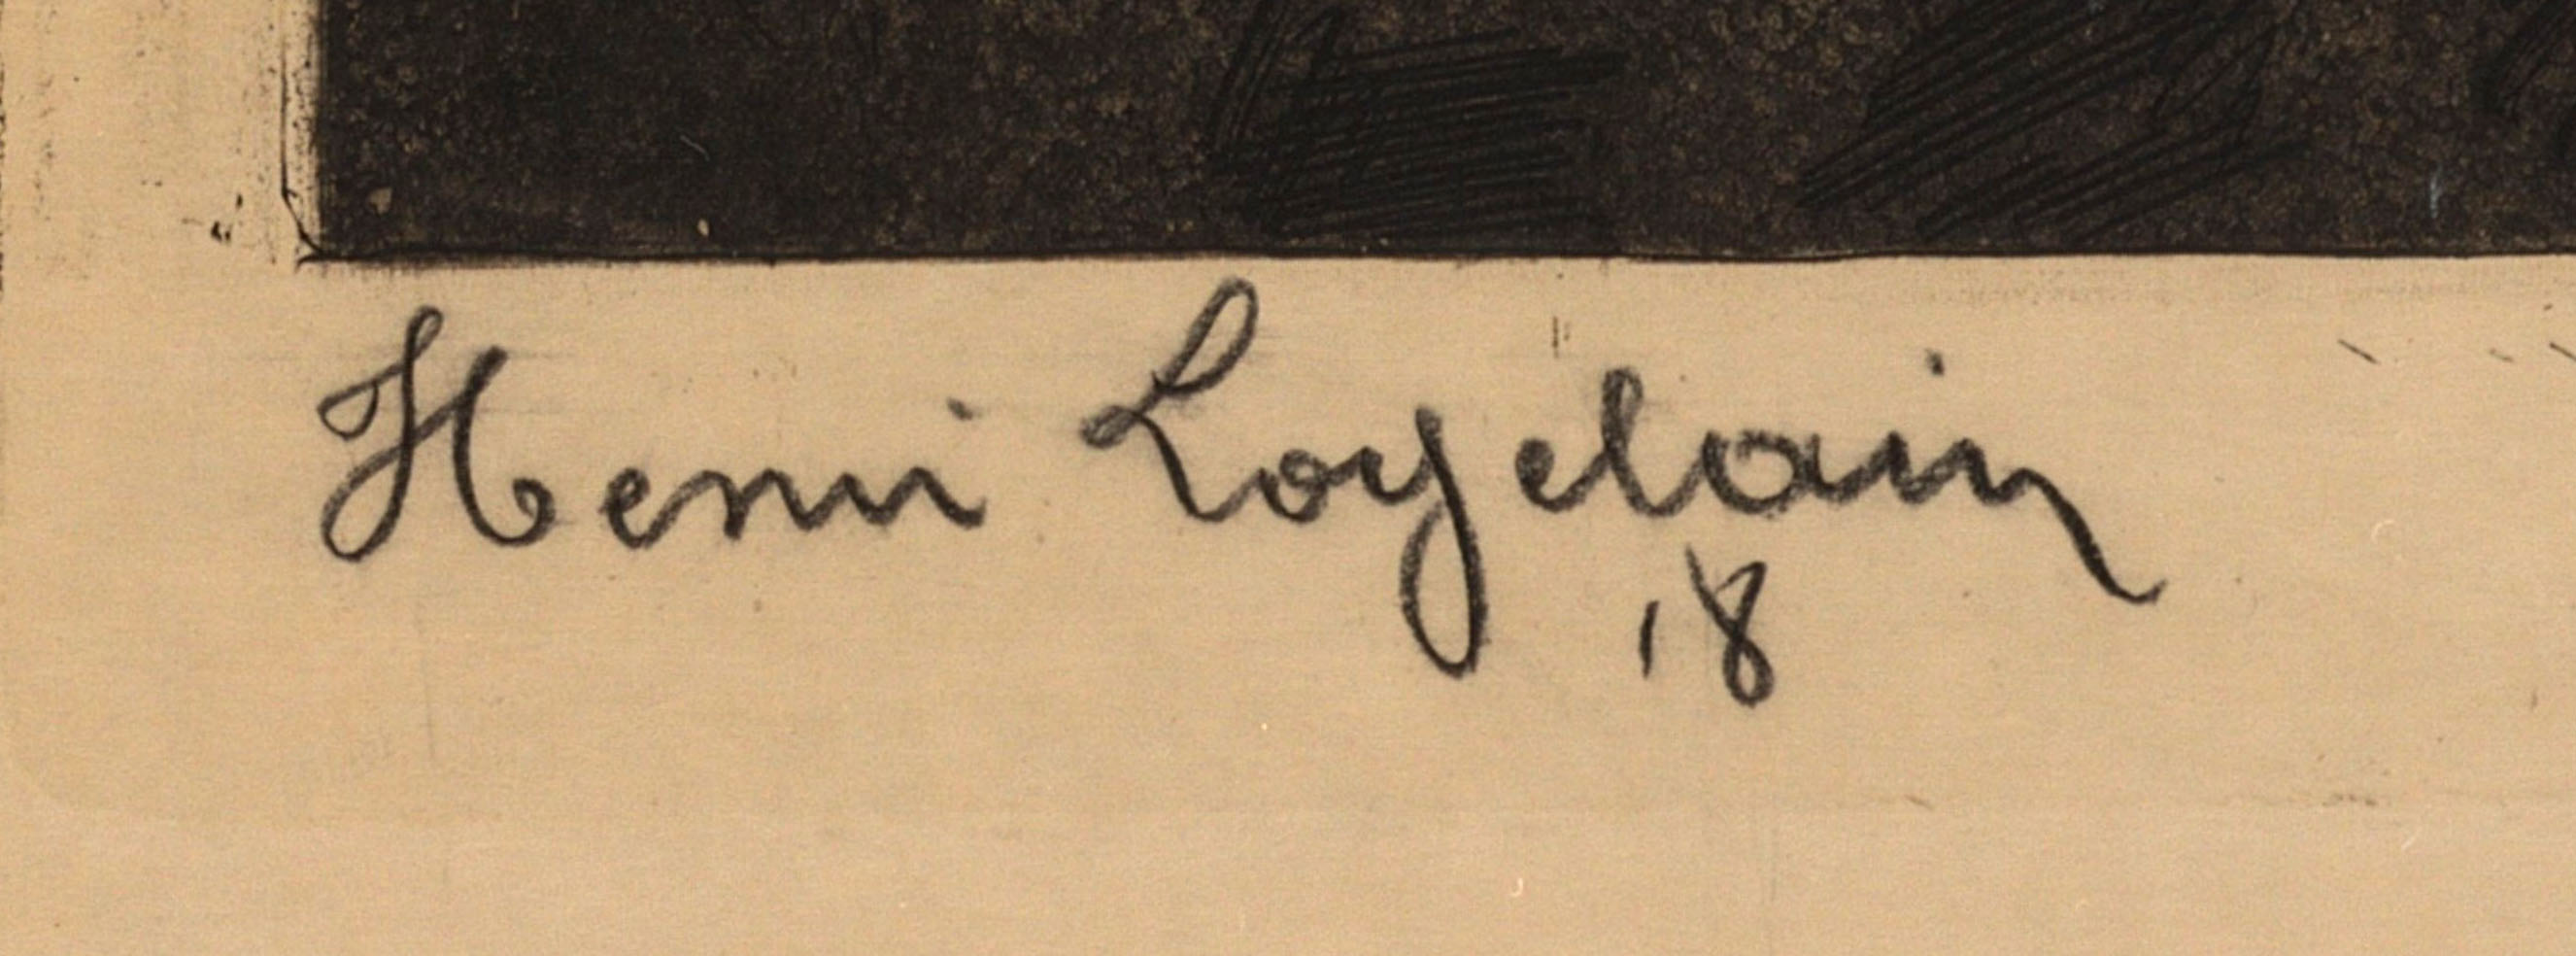 Henri Logelain
18